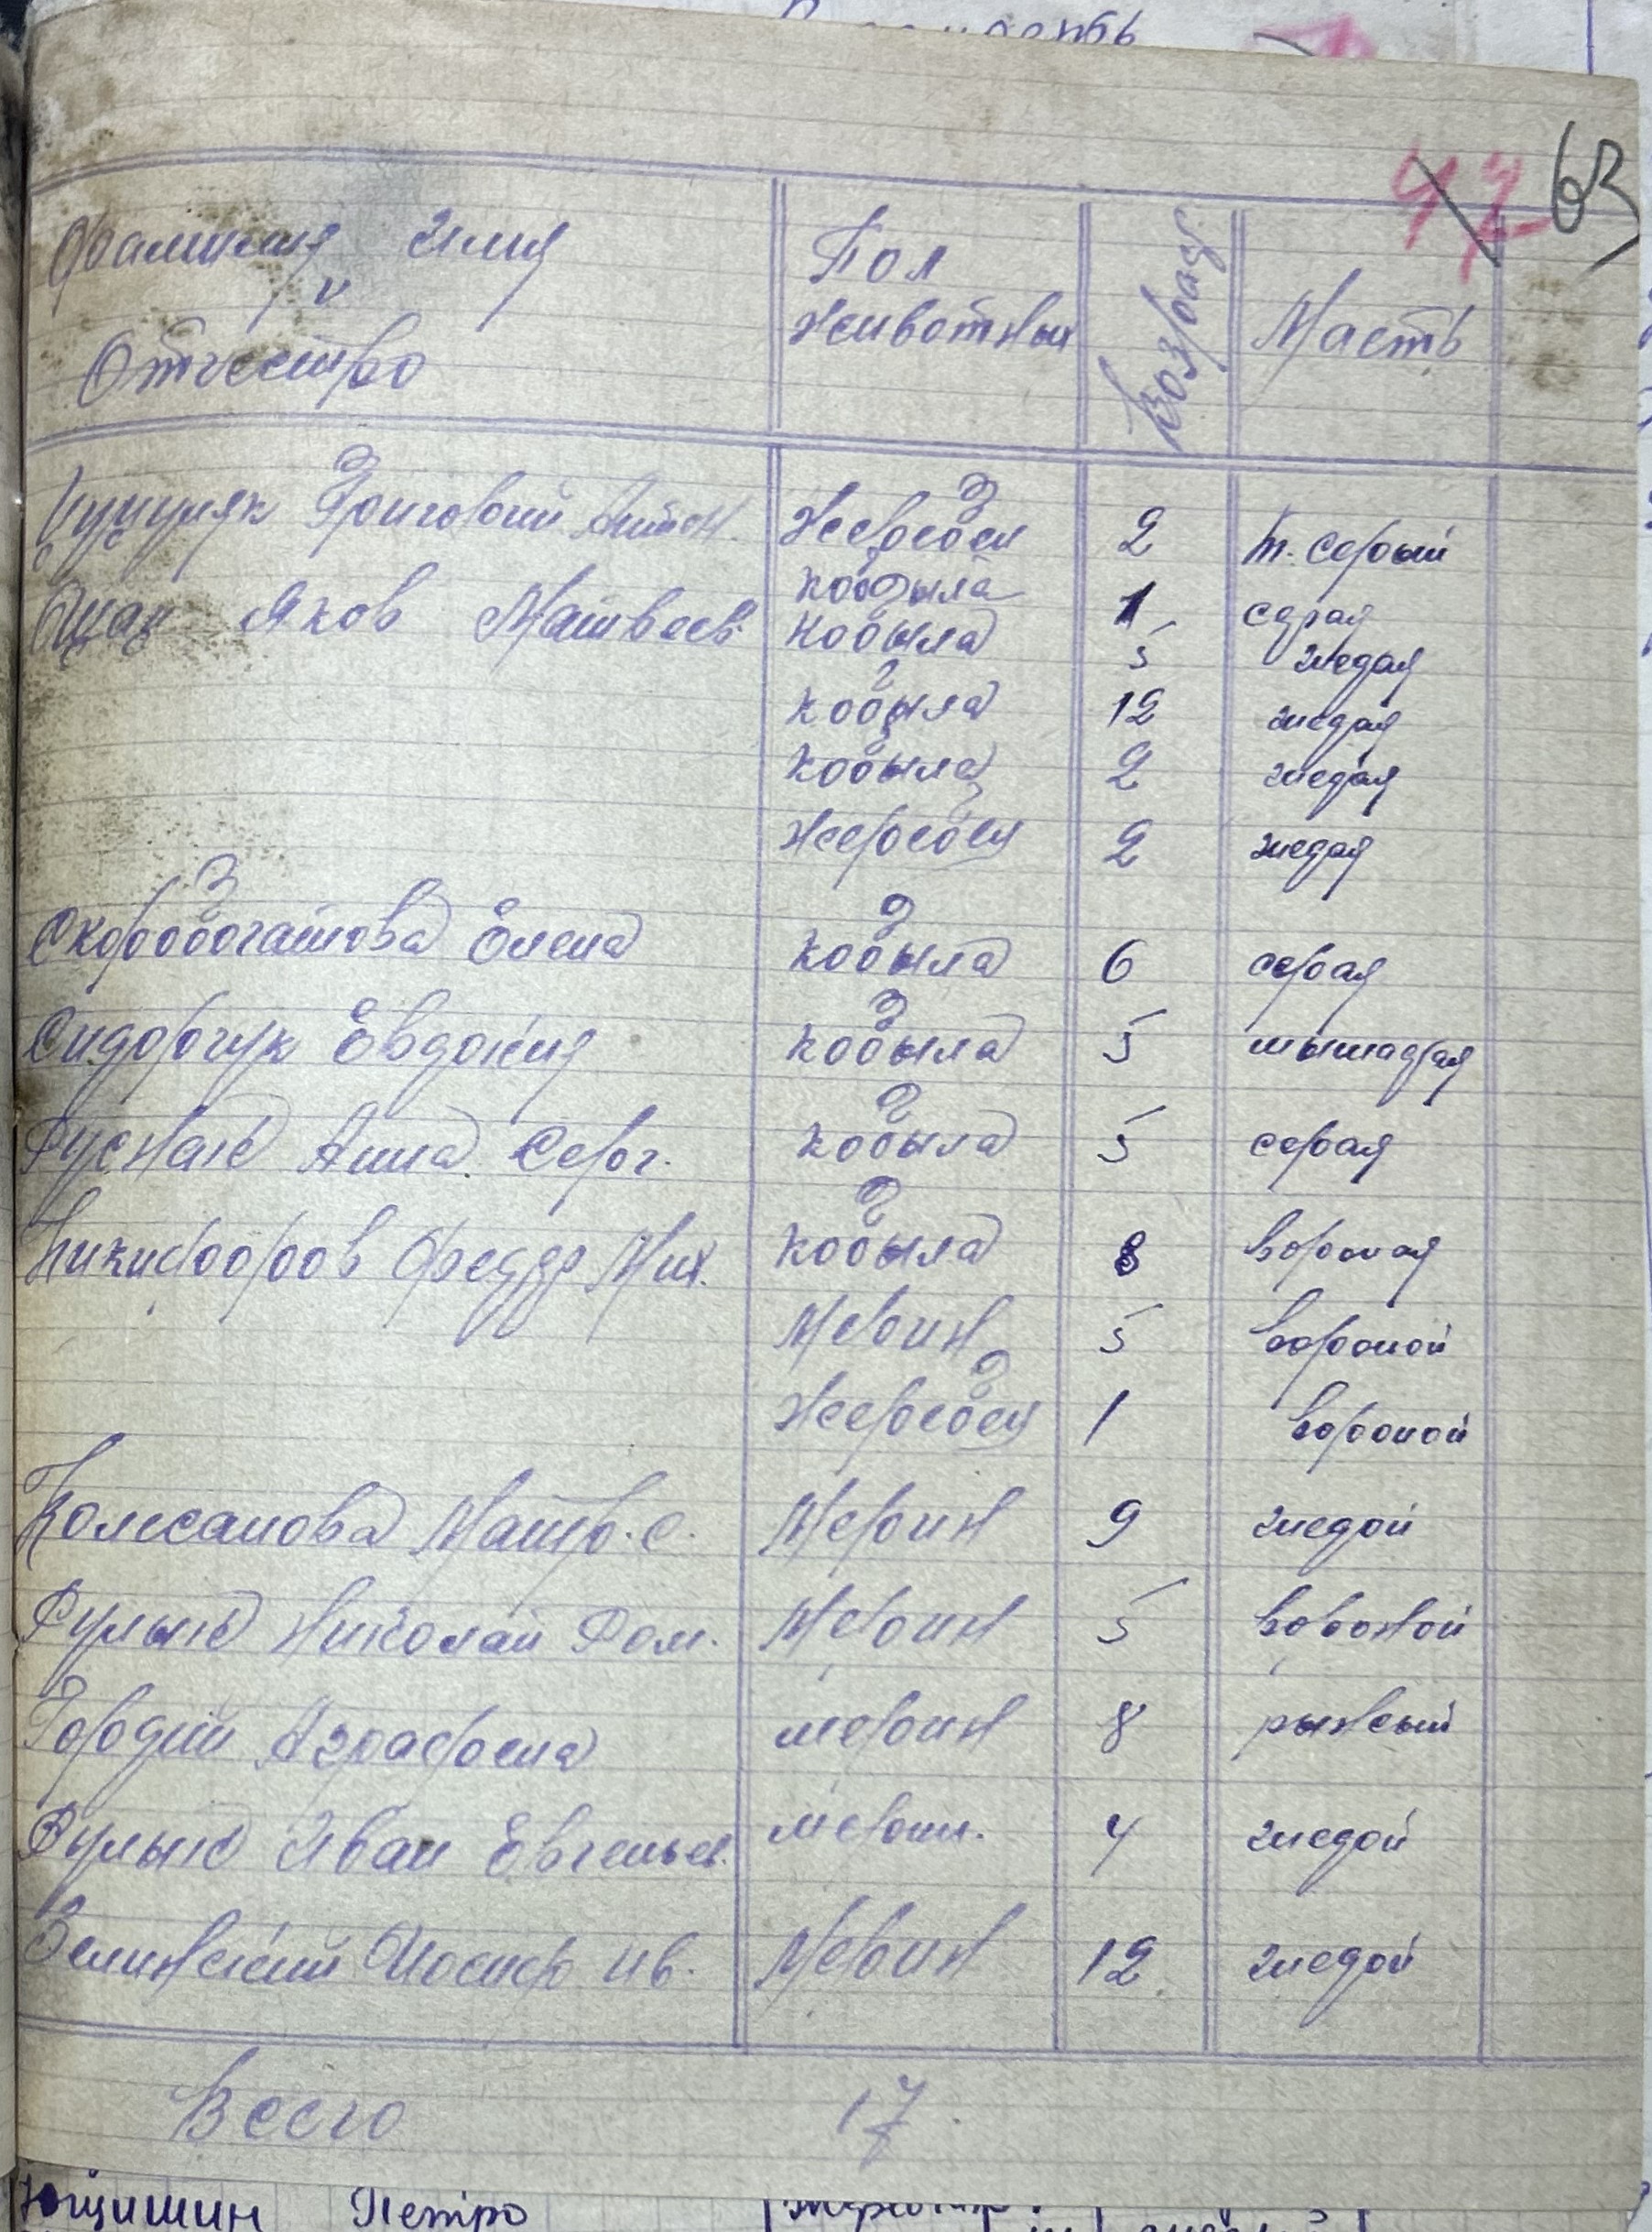 63
Фамилия Имя
и
Отчество
Пол
животных
Возраст
Масть
Григорий Антон. Жеребец 2 т. серый
кобыла 1 серая
Яков Матвеев. кобыла 5 гнедая
кобыла 12 гнедая
кобыла 2 гнедая
жеребец 2 гнедая
Скоробогатова Елена кобыла 6 серая
Сидорчук Евдокия кобыла 5 мышастая
Анна Серг. кобыла 5 серая
Никифоров Федор Мих. кобыла 8 вороная
Мерин 5 вороной
Жеребец 1 вороной
Матр. С. Мерин 9 гнедой
Николай Ром. Мерин 5 вороной
Гордий Аграфена мерин 8 рыжый
Иван Евгеньев. мерин. 4 гнедой
Зелинский Иосиф Ив. Мерин 12 гнедой
Всего 17
Ющишин Петро